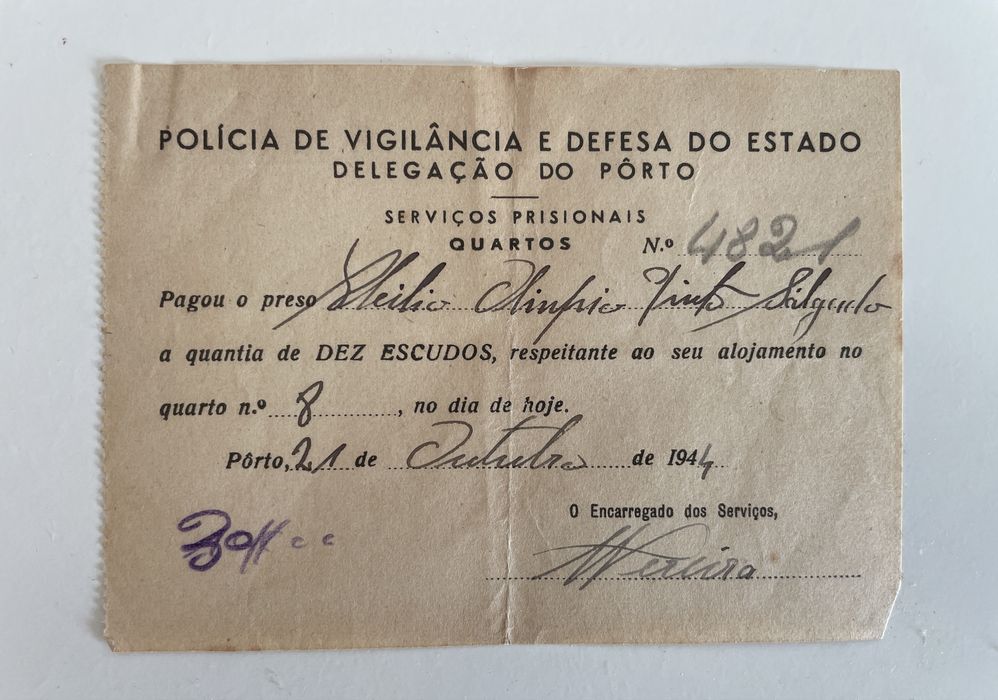 POLÍCIA DE VIGILÂNCIA E DEFESA DO ESTADO
DELEGAÇÃO DO PÔRTO
SERVIÇOS PRISIONAIS
QUARTOS N.º 4821
Pagou o preso Olimpio Pinto Salgado
a quantia de DEZ ESCUDOS, respeitante ao seu alojamento no
quarto n.º 8, no dia de hoje.
Pôrto, 21 de Outubro de 1944
O Encarregado dos Serviços,